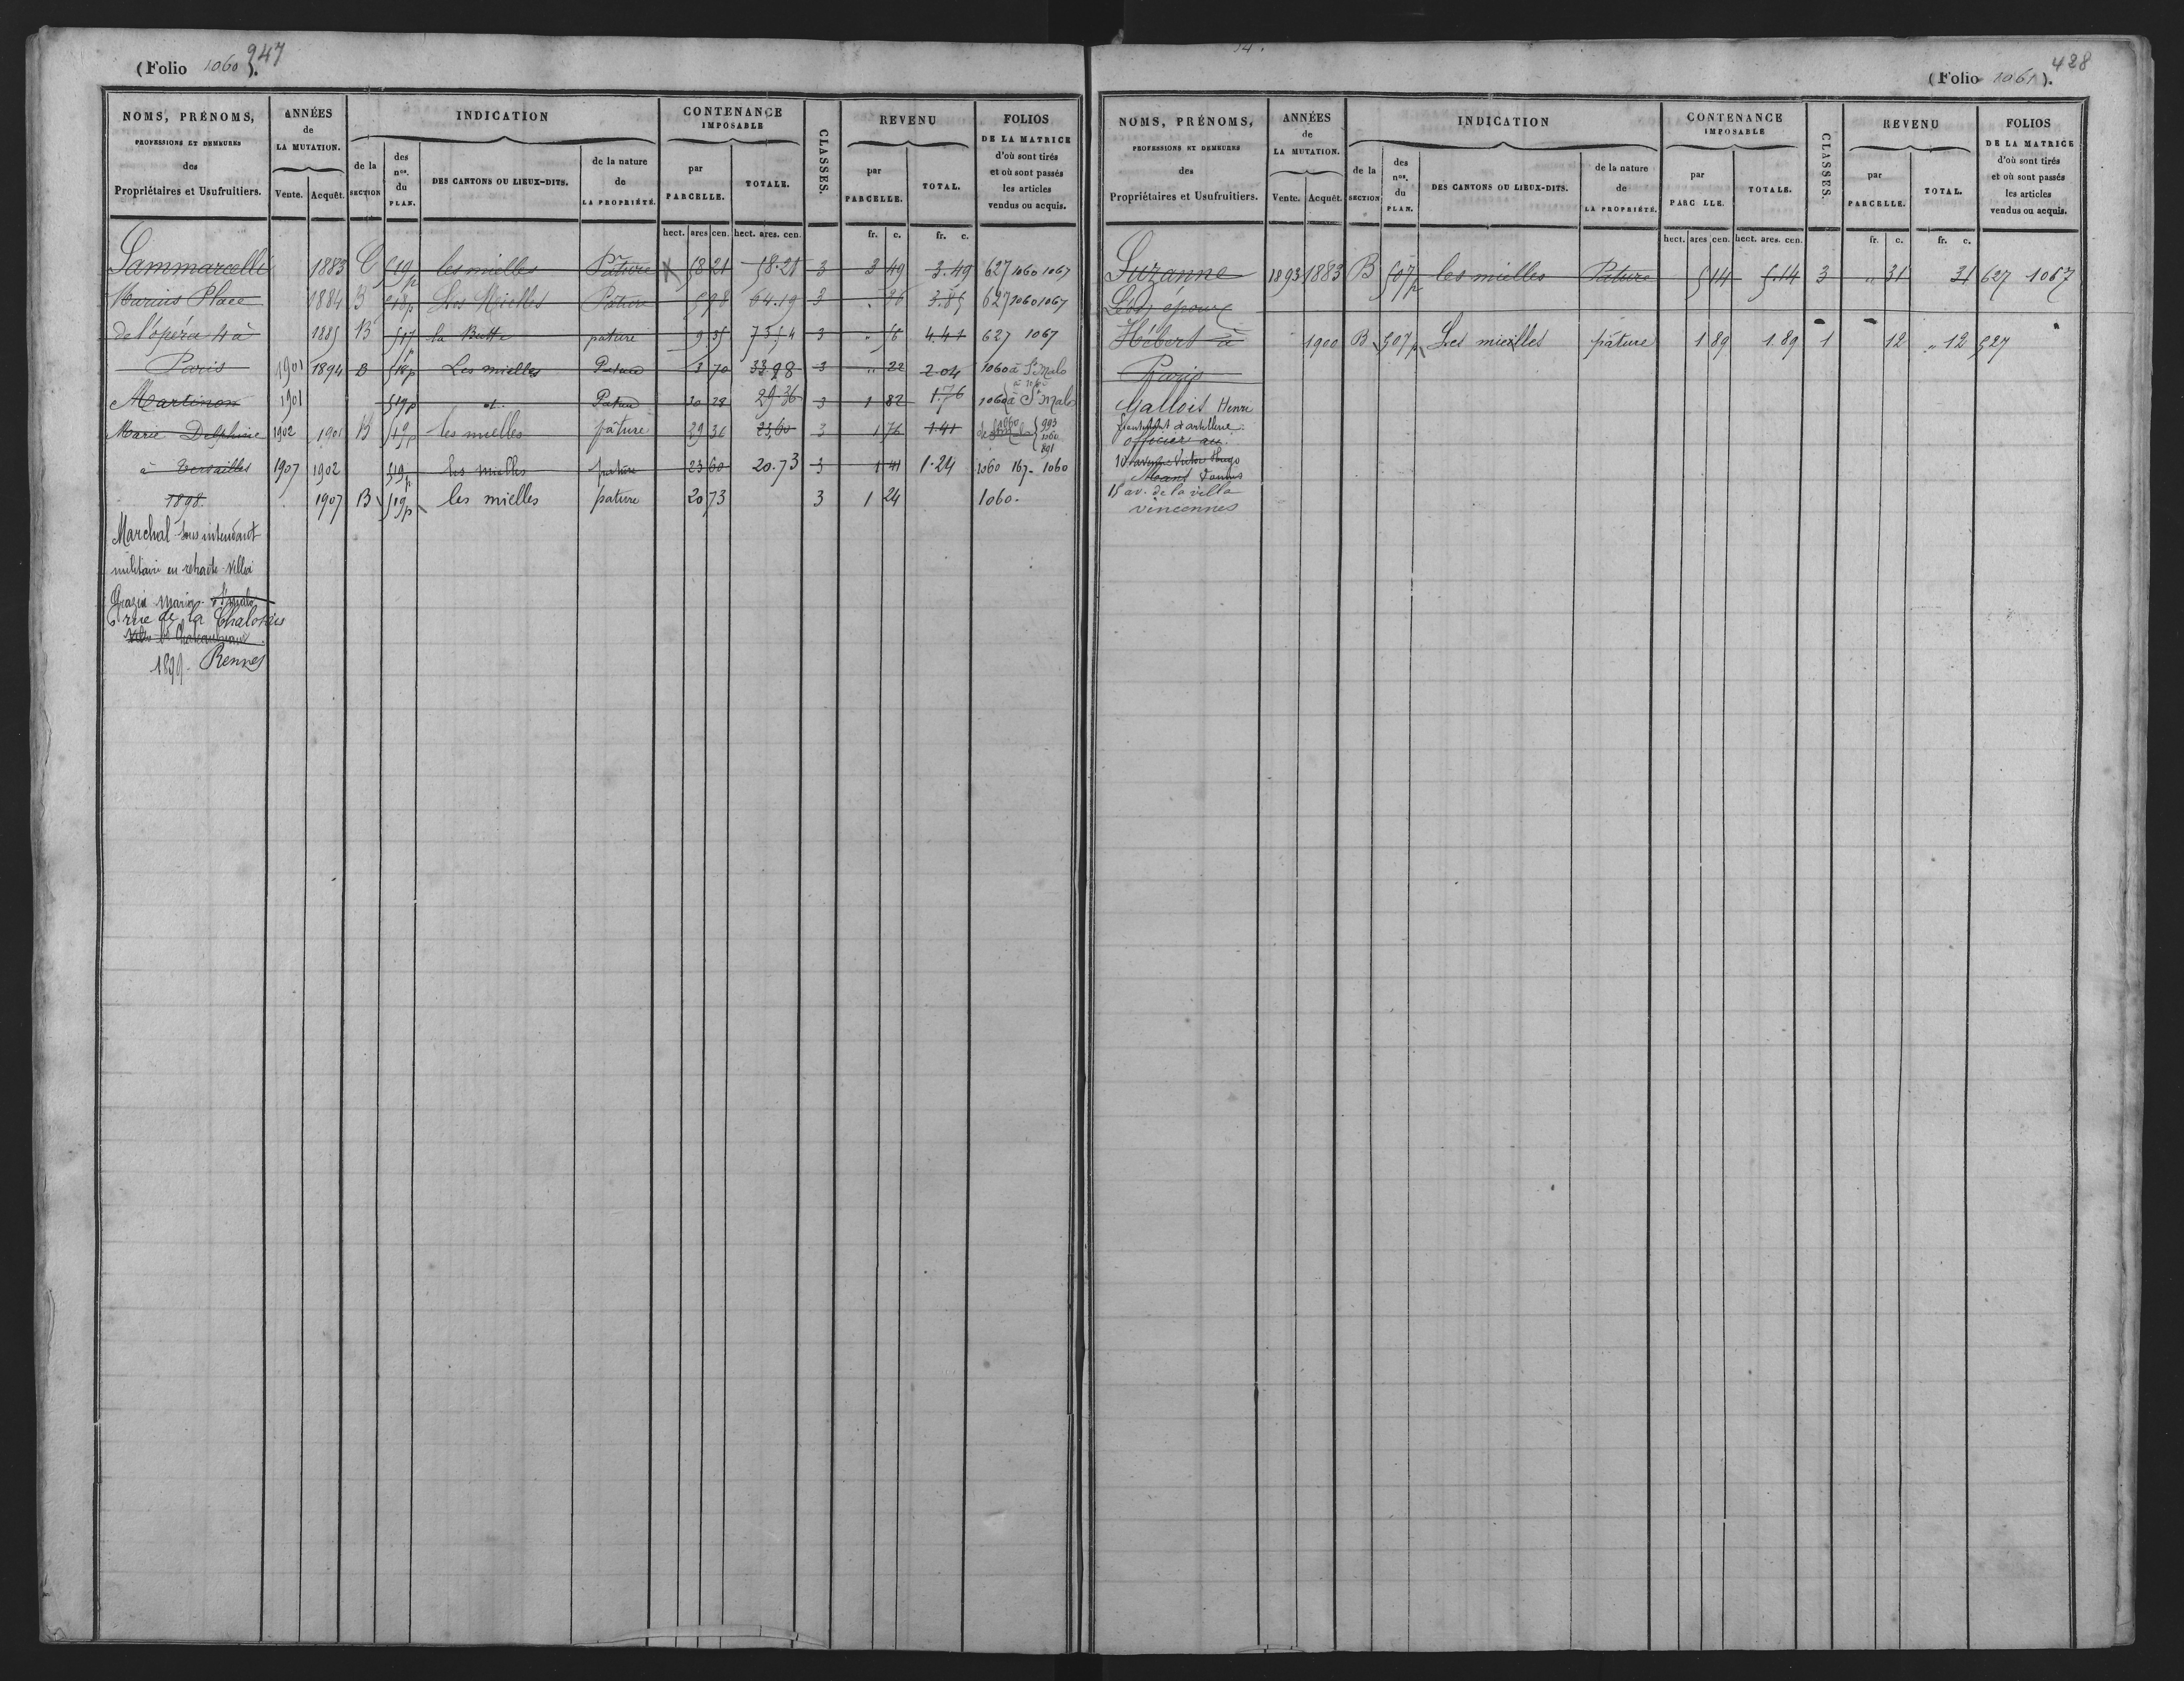 (Folio 1060). 947
NOMS, PRÉNOMS,
PROFESSIONS ET DEMEURES
des
Propriétaires et Usufruitiers.
ANNÉES
de
LA MUTATION.
Vente. Acquêt.
INDICATION
de la
SECTION
des
nos.
du
PLAN.
DES CANTONS OU LIEUX-DITS.
de la nature
de
LA PROPRIÉTÉ.
CONTENANCE
IMPOSABLE
par
PARCELLE.
TOTALE.
CLASSES.
REVENU
par
PARCELLE.
TOTAL.
FOLIOS
DE LA MATRICE
d'où sont tirés
et où sont passés
les articles
vendus ou acquis.
hect. ares cen. hect. ares. cen. fr. c. fr. c.
Sammarcelli 1883 C 519p les mielles Pâture 58 21 58.21 3 3 49 3.49 627 1060 1067
Marius Place 1884 B 518p Les Mielles Pâture 5 98 64.19 3 " 36 3.85 627 1060 1067
de l'opéra 4 à 1885 B 517 la Butte pature 9 35 73 54 3 " 56 4.41 627 1067
Paris 1901 1894 B 518p Les mielles Pature 3 70 33 98 3 " 22 2.04 1060 à St Malo
Martinon 1901 519p d. Pature 30 28 29.36 3 1 82 1.76 1060 à St Malo
Marie Delphine 1902 1901 B 519p les mielles pâture 29 36 23,60 3 1 76 1.41 1060 993 1060 891
à Versailles 1907 1902 519p les mielles pature 23 60 20.73 3 1 41 1.24 1060 167- 1060
1898. 1907 B 519p les mielles pature 20 73 3 1 24 1060.
Marchal sous intendant
militaire en retraite villa
Grazia Maria St Malo
6 rue de la Chalotais
1899 - Rennes
(Folio 1061). 428
NOMS, PRÉNOMS,
PROFESSIONS ET DEMEURES
des
Propriétaires et Usufruitiers.
ANNÉES
de
LA MUTATION.
Vente. Acquêt.
INDICATION
de la
SECTION
des
nos.
du
PLAN.
DES CANTONS OU LIEUX-DITS.
de la nature
de
LA PROPRIÉTÉ.
CONTENANCE
IMPOSABLE
par
PARC LLE.
TOTALE.
CLASSES.
REVENU
par
PARCELLE.
TOTAL.
FOLIOS
DE LA MATRICE
d'où sont tirés
et où sont passés
les articles
vendus ou acquis.
hect. ares cen. hect. ares. cen. fr. c. fr. c.
Suzanne 1893 1883 B 507p les mielles Pature 5 14 5.14 3 " 31 31 627 1067
épouse
Hébert à 1900 B 507p Les mielles pâture 1 89 1.89 1 12 " 12 527
Paris
Gallois Henri
d'artillerie
officier au
10 avenue Victor Hugo
Vannes
15 av. de la villa
vincennes